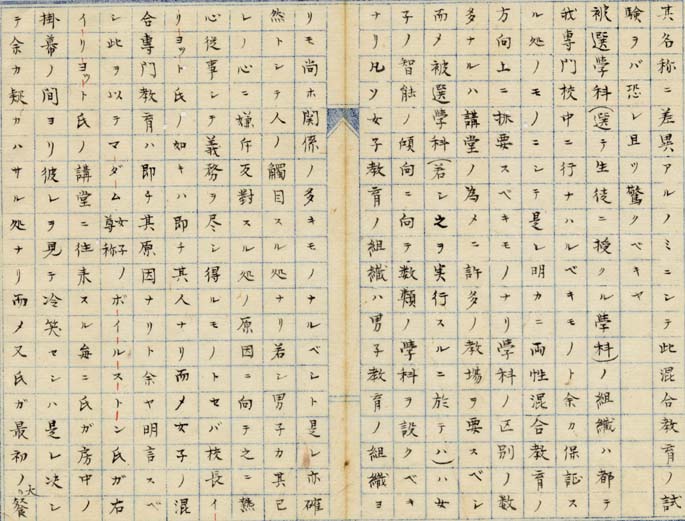 其名称ニ差異アルノミニシテ此混合教育ノ試
験ヲバ恐レ且ツ驚クベキヤ
被選學科(選テ生徒ニ授クル學科)ノ組織ハ都テ
我専門校中ニ行ナハルベキモノト余カ保証ス
ル処ノモノニシテ是レ明カニ両性混合教育ノ
方向上ニ拯要スベキモノナリ學科ノ区別ノ数
多ナルハ講堂ノ為メニ許多ノ教場ヲ要スベシ
而メ被選學科(若シ之ヲ実行スルニ於テハ)ハ女
子ノ智能ノ傾向ニ向テ数類ノ學科ヲ設クベキ
ナリ凡ソ女子教育ノ組織ハ男子教育ノ組織ヨ
リモ尚ホ関係ノ多キモノナルベシト是レ亦確
然トシテ人ノ觸目スル処ナリ若シ男子カ其已
レノ心ニ嫌斥反對スル処ノ原因ニ向テ之ニ熱
心従事シテ義務ヲ尽シ得ルモノトセバ校長イー
リヨット氏ノ如キハ即チ其人ナリ而メ女子ノ混
合専門教育ハ即チ其原因ナリト余ヤ明言スベ
シ此ヲ以テマダーム女子ノ尊称ボイルストン氏ガ右
イーリヨット氏ノ講堂ニ往来スル毎ニ氏ガ房中ノ
掛幕ノ間ヨリ彼レヲ見テ冷笑セシハ是レ决シ
テ余カ疑ガハサル処ナリ而メ又氏ガ最初ノ大餐